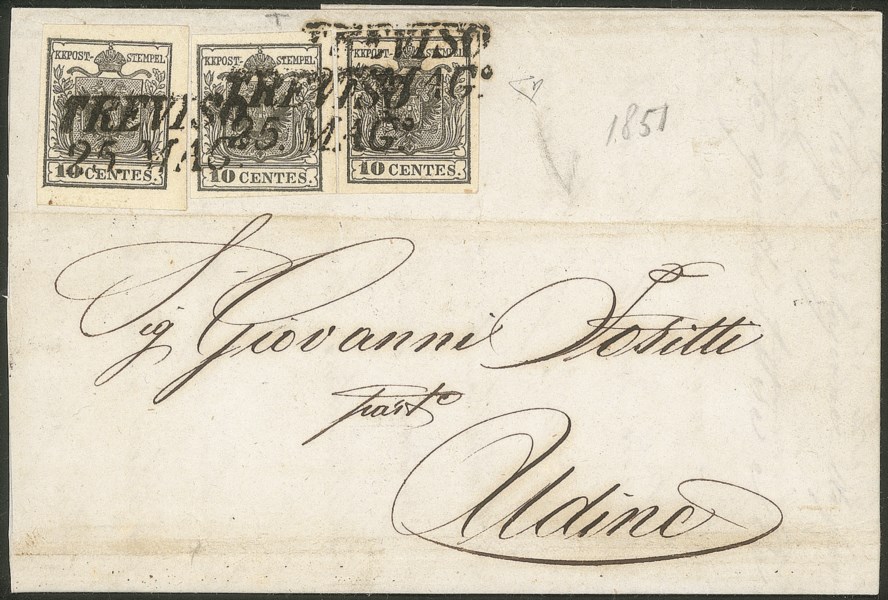 KKPOST-STEMPEL
10 CENTES.
KKPOST-STEMPEL
10 CENTES.
KKPOST-STEMPEL
10 CENTES.
TREVISO
25. MAG.
TREVISO
25. MAGº
TREVISO
MAGº
1851
Sig Giovanni Tositti
Udine